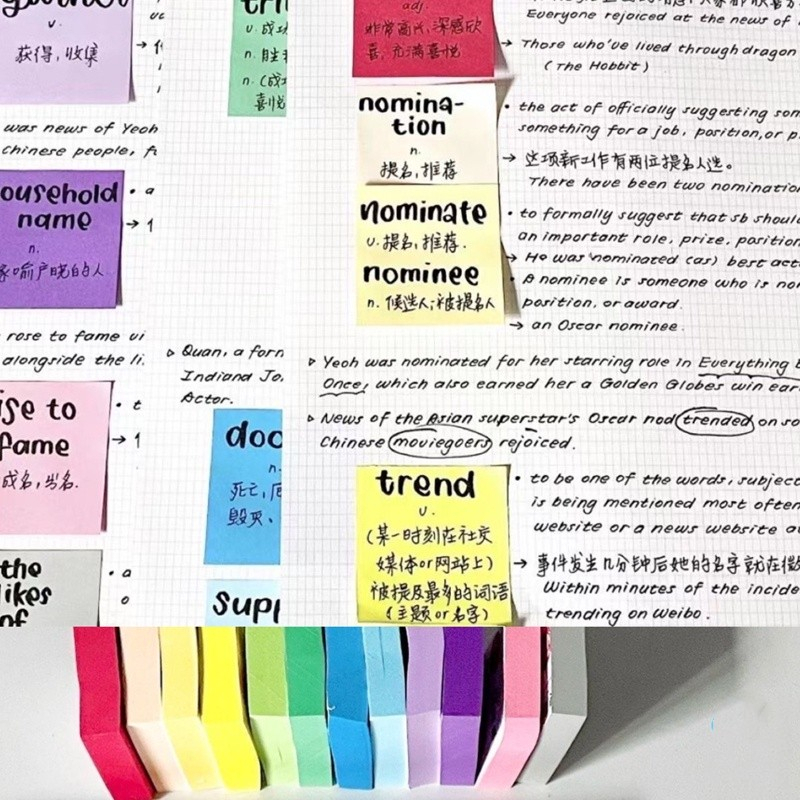 v.
获得,收集
was news of Yeoh
Chinese people, f
ousehold
name
n.
家喻户晓的人
rose to fame vi
alongside the li.
ise to
fame
成名,出名.
the
likes
of
v. 成功
n. 胜利
n. (成功
喜悦
Quan, a form
Indiana Jo.
Actor.
doo
n.
死亡,厄
毁灭、
supp
adj.
非常高兴,深感欣
喜,充满喜悦
Everyone rejoiced at the news of
→ Those who've lived through dragon
(The Hobbit)
nomina-
tion
n.
提名,推荐
• the act of officially suggesting som
something for a job, position, or p
→ 这项新工作有两位提名人选。
There have been two nomination
nominate
v. 提名,推荐.
• to formally suggest that sb should
an important role, prize, position
→ He was nominated (as) best act
nominee
n. 候选人;被提名人
• A nominee is someone who is nom
position, or award.
→ an Oscar nominee.
▹ Yeoh was nominated for her starring role in Everything E
Once, which also earned her a Golden Globes win ear
▹ News of the Asian superstar's Oscar nod trended on so
Chinese moviegoers rejoiced.
trend
v.
(某一时刻在社交
媒体or网站上)
被提及最多的词语
(主题or名字)
• to be one of the words, subject
is being mentioned most often
website or a news website at
→ 事件发生几分钟后她的名字就在微
Within minutes of the incide
trending on Weibo.